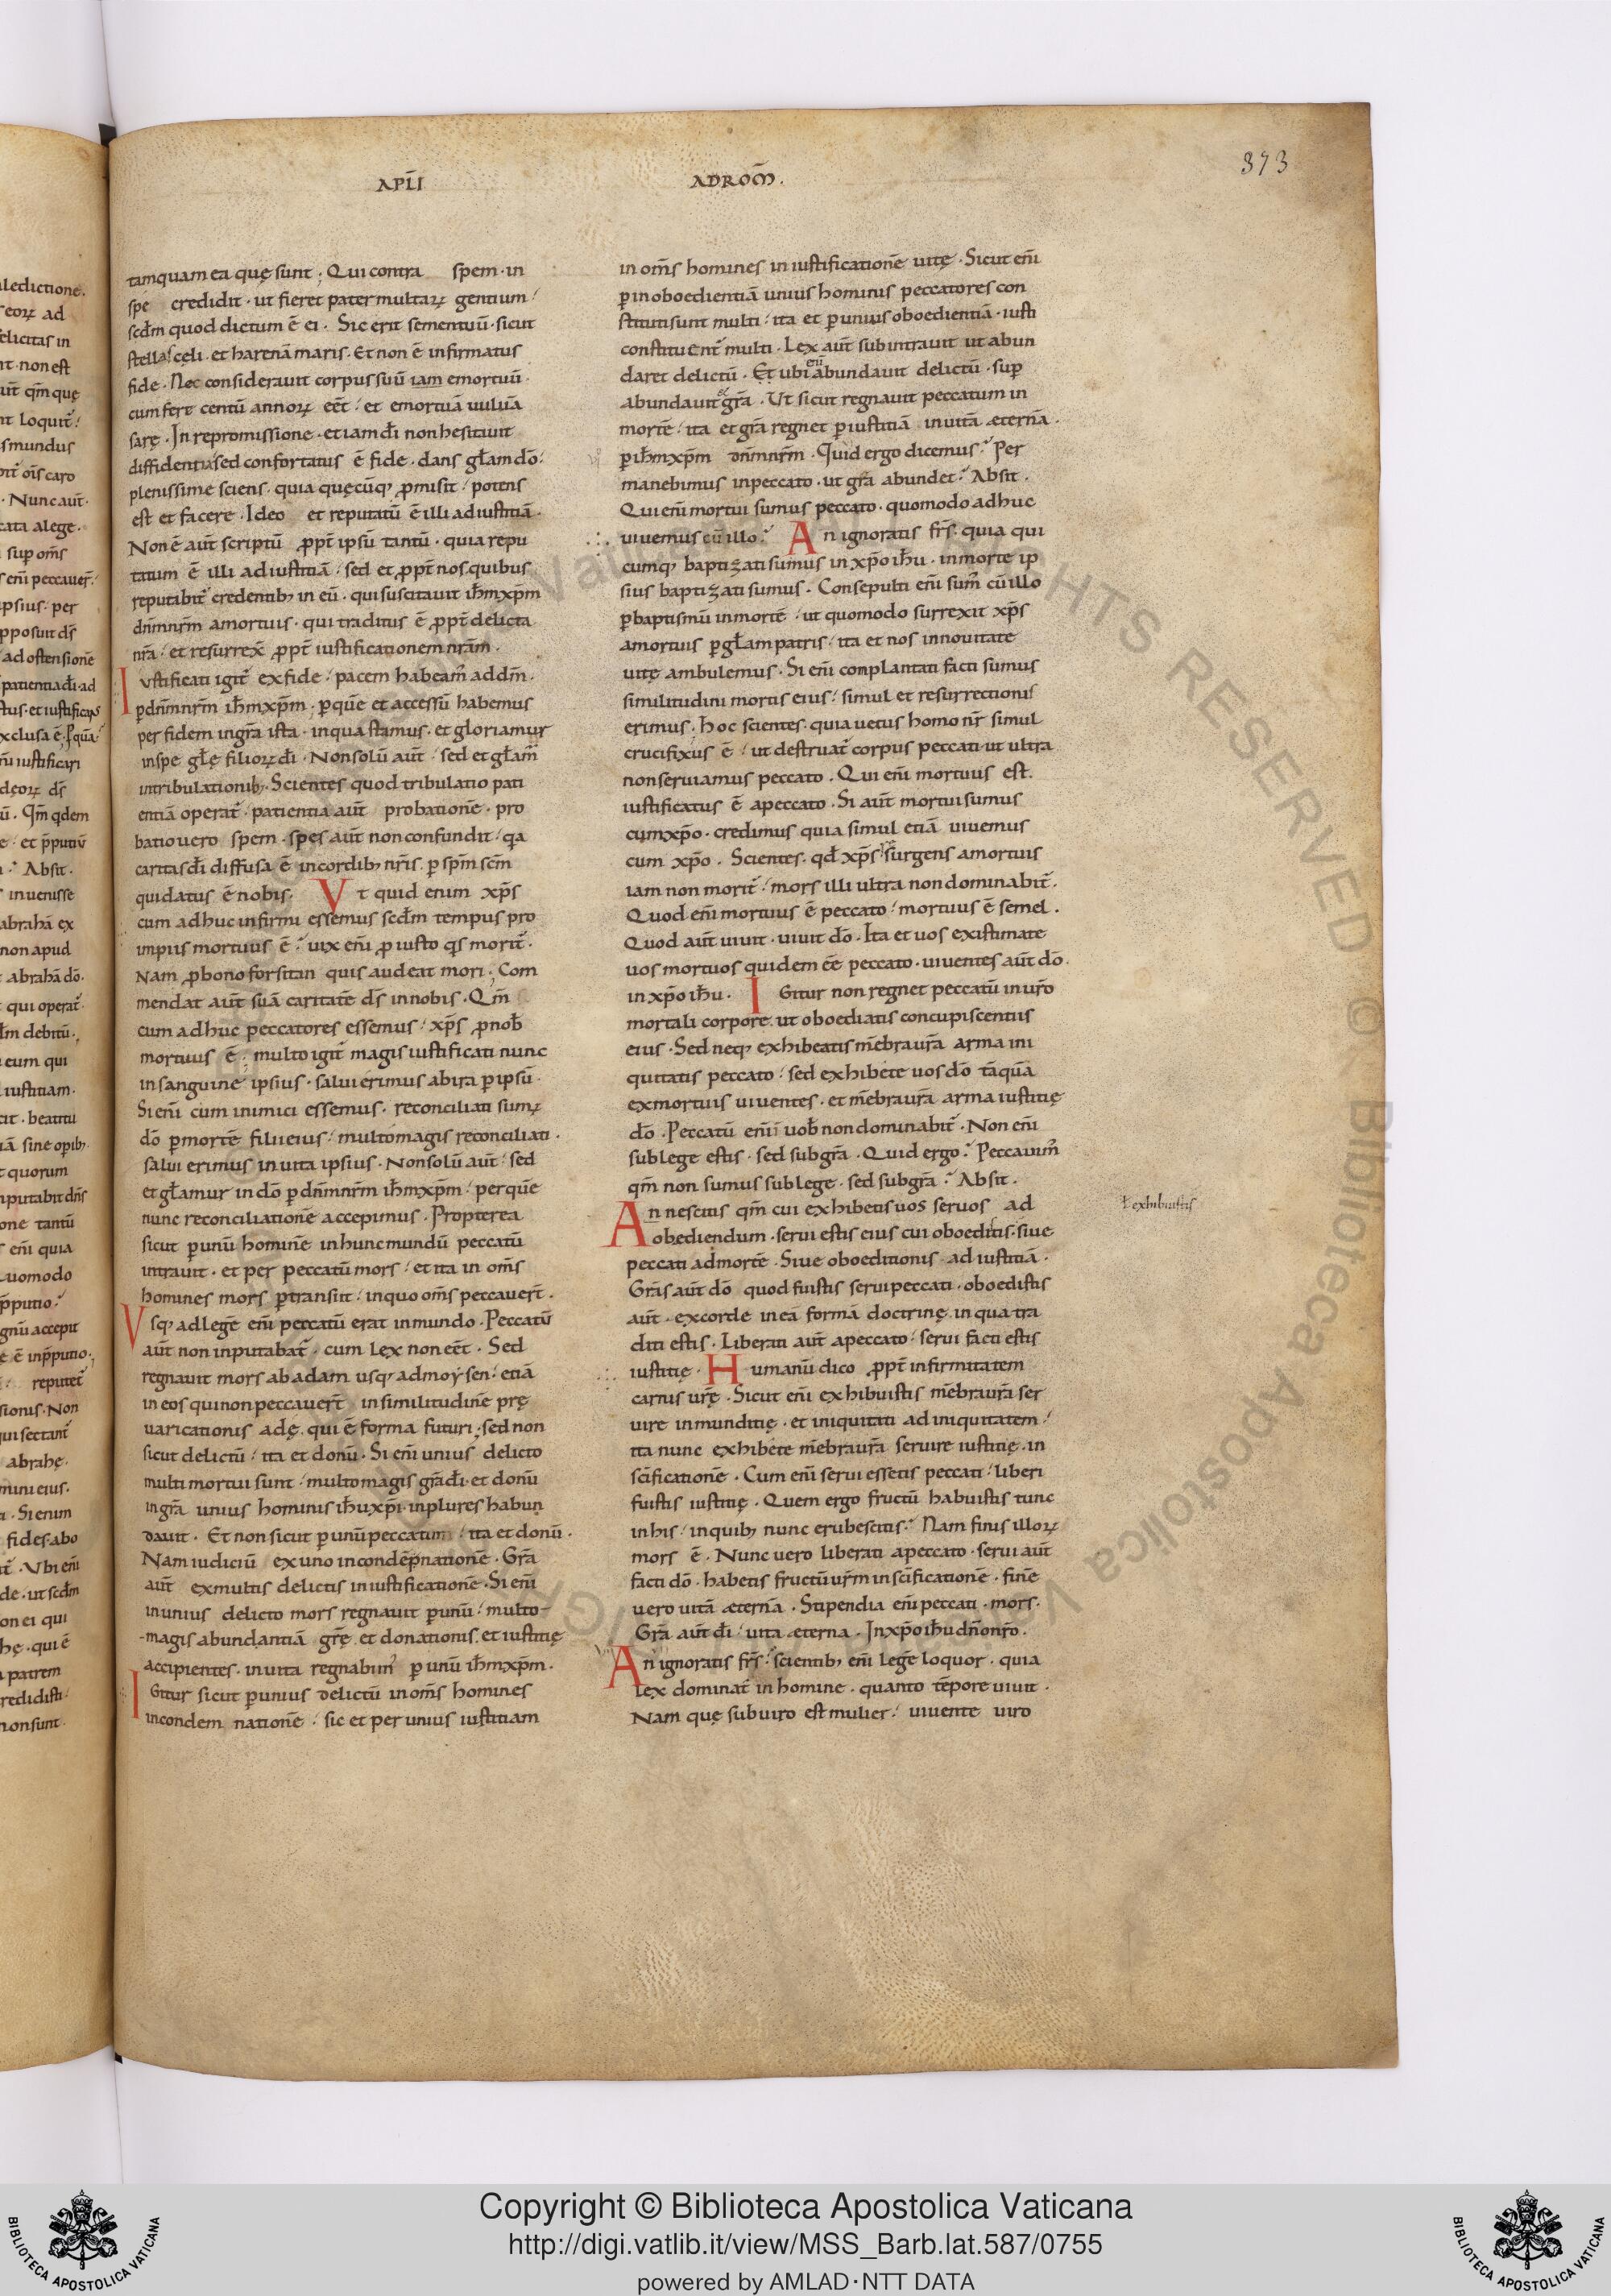 APL̅I
ADROM̅.
373
tamquam ea quę sunt; Qui contra spem · in
spe credidit · ut fieret pater multaꝝ gentium ⁊
scd̅m quod dictum ē ei · Sic erit semen tuū · sicut
stellas cęli · et harenā maris · Et non ē infirmatus
fide · Nec consideravit corpus suū iam emortuū ·
cum fere centū annoꝝ eēt · et emortuā vuluā
sarę · In repromissione · etiam dı̅ non hesitauit
diffidentia sed confortatus ē fide · dans gl̅am dō ·
plenissime sciens · quia quęcūq; p̱misit · potens
est et facere · Ideo et reputatū ē illi ad iustitiā ·
Non ē aut̅ scriptū p̱pt̅ ipsū tantū · quia repu
tatum ē illi ad iustitiā · sed et p̱pt̅ nos quibus
reputabit̅ credentib; in eū · qui suscitauit ih̅m xp̅m
dn̅m nr̅m a mortuis · qui traditus ē p̱pt̅ delicta
nr̅a · et resurrex̅ p̱pt̅ iustificationem nr̅am ·
Iustificati igit̅ ex fide · pacem habeam̅ ad dm̅ ·
p dn̅m nr̅m ih̅m xp̅m · p quē et accessū habemus
per fidem in gr̅a ista · in qua stamus · et gloriamur
in spe gl̅ę filioꝝ dı̅ · Non solū aut̅ · sed et gl̅am̅
in tribulationib; · Scientes quod tribulatio pati
entiā operat̅ · patientia aut̅ probationē · pro
batio uero spem · spes aut̅ non confundit · qa
caritas dı̅ diffusa ē in cordib; nr̅is · p sp̅m sc̅m
qui datus ē nobis · Vt quid enim xp̅s
cum adhuc infirmi essemus scd̅m tempus pro
impiis mortuus ē · uix eni̅ p̱ iusto qs morit̅ ·
Nam p̱ bono forsitan quis audeat mori · Com
mendat aut̅ suā caritatē ds̅ in nobis · Qm̅
cum adhuc peccatores essemus · xp̅s p̱ nob̅
mortuus ē · multo igit̅ magis iustificati nunc
in sanguine ipsius · salui erimus ab ira p ipsū ·
Si eni̅ cum inimici essemus · reconciliati sumꝝ
dō p mortē filii eius · multo magis reconciliati ·
salui erimus in uita ipsius · Non solū aut̅ · sed
et gl̅amur in dō p dn̅m nr̅m ih̅m xp̅m · per quē
nunc reconciliationē accepimus · Propterea
sicut p unū hominē in hunc mundū peccatū
intrauit · et per peccatū mors · et ita in oms̅
homines mors p transiit · in quo oms̅ peccauert̅ ·
Vsq; ad legē eni̅ peccatū erat in mundo · Peccatū
aut̅ non inputabat̅ · cum lex non eēt · Sed
regnauit mors ab adam usq; ad moẏsen · etiā
in eos qui non peccauert̅ in similitudinē prę
uaricationis adę · qui ē forma futuri · sed non
sicut delictū · ita et donū · Si eni̅ unius delicto
multi mortui sunt · multo magis gr̅a dı̅ · et donū
in gr̅a unius hominis ih̅u xp̅i · in plures habun
dauit · Et non sicut p unū peccatum · ita et donū ·
Nam iudiciū ex uno in condēpnationē · Gr̅a
aut̅ ex multis delictis in iustificationē · Si eni̅
in unius delicto mors regnauit p unū · multo
magis abundantiā gr̅ę · et donationis · et iustitię
accipientes · in uita regnabun̅ p unū ih̅m xp̅m ·
Igitur sicut p unius delictū in oms̅ homines
in condemnationē · sic et per unius iustitiam
in oms̅ homines in iustificationē uitę · Sicut eni̅
p inoboedientiā unius hominis peccatores con
stituti sunt multi · ita et p unius oboedientiā · iusti
constituent̅ multi · Lex aut̅ subintrauit ut abun
daret delictū · Et ubi eni̅ abundauit delictū · sup
abundauit et gr̅a · Ut sicut regnauit peccatum in
mortē · ita et gr̅a regnet p iustitiā in uitā æternā ·
p ih̅m xp̅m dn̅m nr̅m · Quid ergo dicemus · Per
manebimus in peccato · ut gr̅a abundet · Absit ·
Qui eni̅ mortui sumus peccato · quomodo adhuc
uiuemus cū illo · An ignoratis fr̅s · quia qui
cumq; baptizati sumus in xp̅o ih̅u · in morte ip
sius baptizati sumus · Consepulti eni̅ sum̅ cū illo
p baptismū in mortē · ut quomodo surrexit xp̅s
a mortuis p gl̅am patris · ita et nos in nouitate
uitę ambulemus · Si eni̅ complantati facti sumus
similitudini mortis eius · simul et resurrectionis
erimus · Hoc scientes · quia uetus homo nr̅ simul
crucifixus ē · ut destruat̅ corpus peccati · ut ultra
non seruiamus peccato · Qui eni̅ mortuus est ·
iustificatus ē a peccato · Si aut̅ mortui sumus
cum xp̅o · credimus quia simul etiā uiuemus
cum xp̅o · Scientes · qd̅ xp̅s surgens a mortuis
iam non morit̅ · mors illi ultra non dominabit̅ ·
Quod eni̅ mortuus ē peccato · mortuus ē semel ·
Quod aut̅ uiuit · uiuit dō · Ita et uos existimate
uos mortuos quidem eē peccato · uiuentes aut̅ dō ·
in xp̅o ih̅u · Igitur non regnet peccatū in ur̅o
mortali corpore · ut oboediatis concupiscentiis
eius · Sed neq; exhibeatis mēbra ur̅a arma ini
quitatis peccato · sed exhibete uos dō tāquā
ex mortuis uiuentes · et mēbra ur̅a arma iustitię
dō · Peccatū eni̅ uob̅ non dominabit̅ · Non eni̅
sub lege estis · sed sub gr̅a · Quid ergo · Peccauim̅
qm̅ non sumus sub lege · sed sub gr̅a · Absit ·
An nescitis qm̅ cui exhibetis uos seruos ad
ł exhibuistis
obediendum · serui estis eius cui oboeditis · siue
peccati ad mortē · Siue oboeditionis ad iustitiā ·
Gr̅as aut̅ dō quod fuistis serui peccati · oboedistis
aut̅ · ex corde in eā formā doctrinę · in qua tra
diti estis · Liberati aut̅ a peccato · serui facti estis
iustitię · Humanū dico p̱pt̅ infirmitatem
carnis ur̅ę · Sicut eni̅ exhibuistis mēbra ur̅a ser
uire inmunditię · et iniquitati ad iniquitatem ·
ita nunc exhibete mēbra ur̅a seruire iustitię · in
sc̅ificationē · Cum eni̅ serui essetis peccati · liberi
fuistis iustitię · Quem ergo fructū habuistis tunc
in his · in quib; nunc erubescitis · Nam finis illoꝝ
mors ē · Nunc uero liberati a peccato · serui aut̅
facti dō · habetis fructū ur̅m in sc̅ificationē · finē
uero uitā æternā · Stipendia eni̅ peccati · mors ·
Gr̅a aut̅ dı̅ · uita æterna · In xp̅o ih̅u dn̅o nr̅o ·
An ignoratis fr̅s · scientib; eni̅ legē loquor · quia
lex dominat̅ in homine · quanto tēpore uiuit ·
Nam quę sub uiro est mulier · uiuente uiro
Copyright © Biblioteca Apostolica Vaticana
http://digi.vatlib.it/view/MSS_Barb.lat.587/0755
powered by AMLAD·NTT DATA
BIBLIOTECA APOSTOLICA VATICANA
BIBLIOTECA APOSTOLICA VATICANA